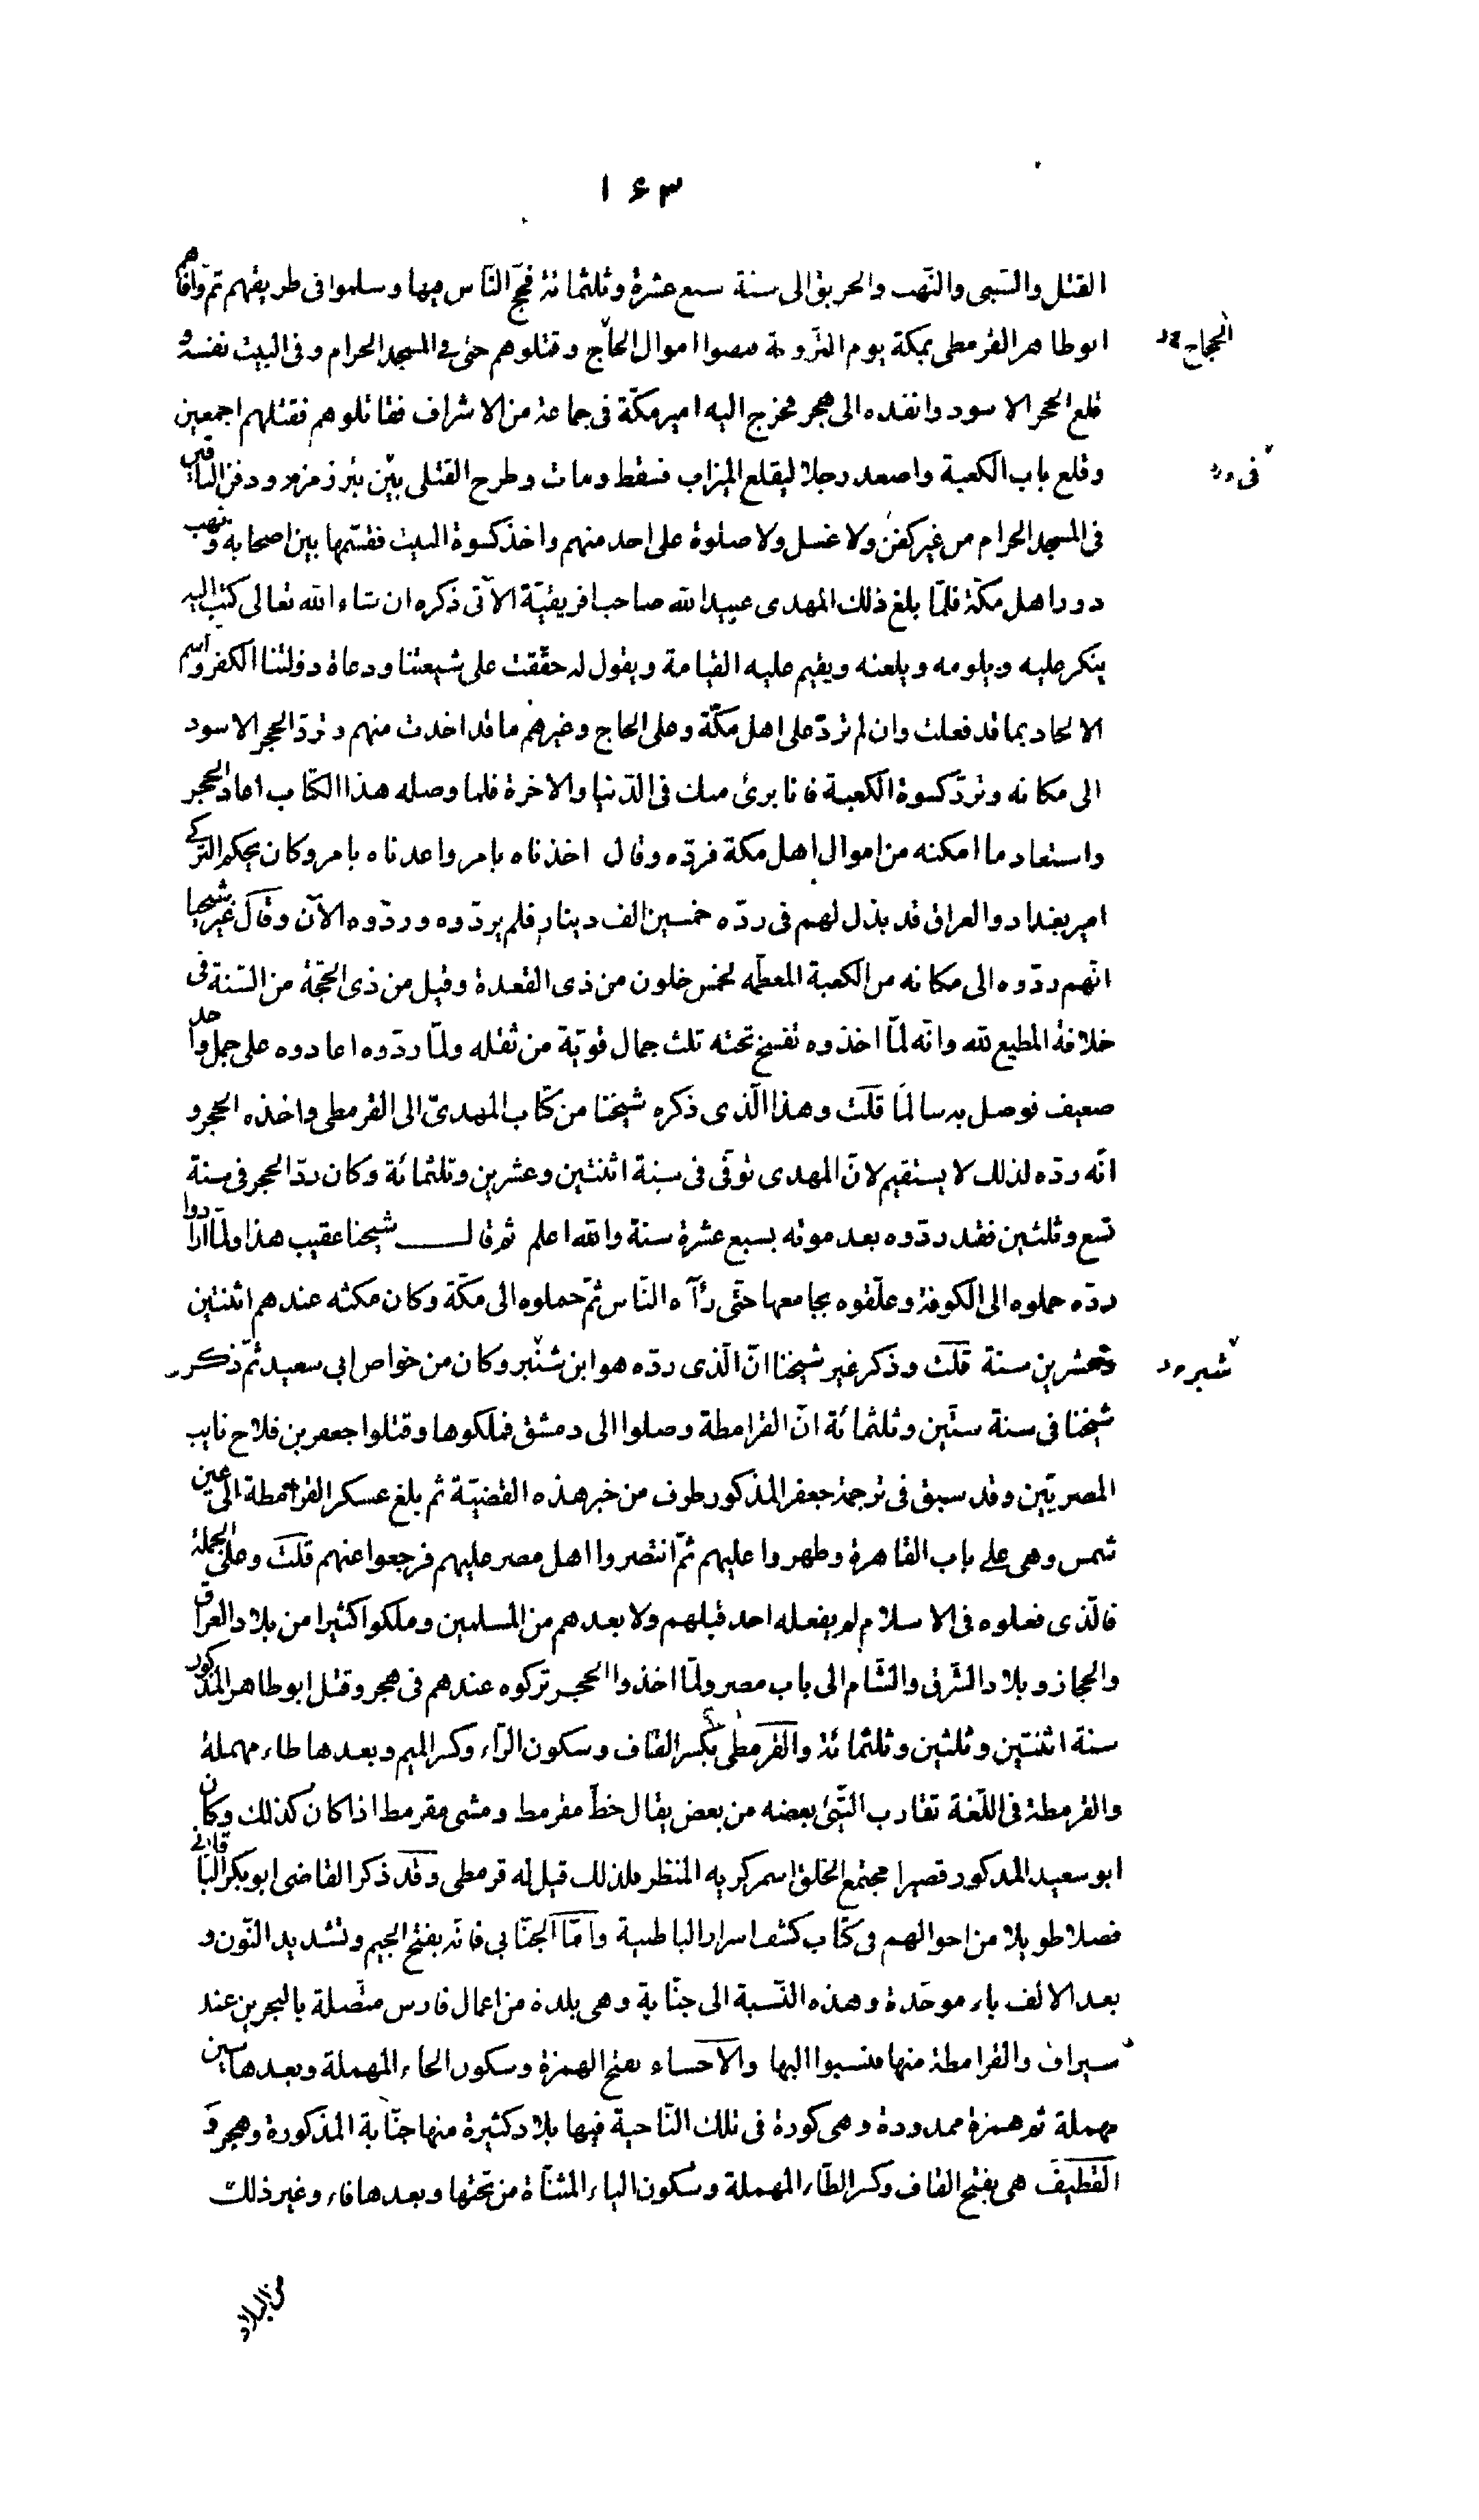 ١٦٣
القتل والسّبى والنّهب والحريق الى سنة سبع عشرة وثلثمائة فحجّ النّاس فيها وسلموا فى طريقهم ثمّ وافاهم
ابو طاهر القرمطى بمكة يوم التّروية فنهبوا اموال الحاّج وقتلوهم حتى فى المسجد الحرام وفى البيت نفسه و
الحجاج
قلع الحجر الاسود وانفذه الى هجر فخرج اليه امير مكّة فى جماعة من الاشراف فقاتلوهم فقتلهم اجمعين
وقلع باب الكعبة واصعد رجلا ليقلع الميزاب فسقط ومات وطرح القتلى بيّن بئر زمزم ودفن الباقين
فى
فى المسجد الحرام من غير كفن ولا غسل ولا صلوة على احد منهم واخذ كسوة البيت فقسّمها بين اصحابه ونهب
دور اهل مكّة فلمّا بلغ ذلك المهدى عبيد الله صاحب افريقيّة الآتى ذكره ان شاء الله تعالى كتب اليه
ينكر عليه ويلومه ويلعنه ويقيم عليه القيامة ويقول له حقّقت على شيعتنا ودعاة دولتنا الكفر واسم
الالحاد بما قد فعلت وان لم تردّ على اهل مكّة وعلى الحاج وغيرهم ما قد اخذت منهم وتردّ الحجر الاسود
الى مكانه وتردّ كسوة الكعبة فانا برئ منك فى الدّنيا والاخرة فلما وصله هذا الكتاب اعاد الحجر
واستعاد ما امكنه من اموال اهل مكة فردّه وقال اخذناه بامر واعدناه بامر وكان بجكم التركى
امير بغداد والعراق قد بذل لهم فى ردّه خمسين الف دينار فلم يردّوه وردّوه الآن وقال غير شيخنا
انّهم ردّوه الى مكانه من الكعبة المعظّمه لخمس خلون من ذى القعدة وقيل من ذى الحجّة من السّنة فى
خلافة المطيع لله وانّه لمّا اخذوه تفسخ تحته ثلث جمال قويّة من ثقله ولمّا ردّوه اعادوه على جمل واحد
ضعيف فوصل به سالمًا قلت وهذا الّذى ذكره شيخنا من كتاب المهدىّ الى القرمطى واخذه الحجر و
انّه ردّه لذلك لا يستقيم لانّ المهدى توفّى فى سنة اثنتين وعشرين وثلثمائة وكان ردّ الحجر فى سنة
تسع وثلثين فقد ردّوه بعد موته بسبع عشرة سنة والله اعلم ثم قال شيخنا عقيب هذا ولمّا ارادوا
ردّه حملوه الى الكوفة وعلّقوه بجامعها حتّى رآه النّاس ثمّ حملوه الى مكّة وكان مكثه عندهم اثنتين
وعشرين سنة قلت وذكر غير شيخنا انّ الّذى ردّه هو ابن شنبر وكان من خواص ابى سعيد ثمّ ذكر
شبر
شيخنا فى سنة ستّين وثلثمائة انّ القرامطة وصلوا الى دمشق فملكوها وقتلوا جعفر بن فلاح نايب
المصريّين وقد سبق فى ترجمة جعفر المذكور طرف من خبر هذه القضيّة ثم بلغ عسكر القرامطة الى عين
شمس وهى على باب القاهرة وظهروا عليهم ثمّ انتصروا اهل مصر عليهم فرجعوا عنهم قلت وعلى الجملة
فالّذى فعلوه فى الاسلام لم يفعله احد قبلهم ولا بعدهم من المسلمين وملكوا كثيرا من بلاد العراق
والحجاز وبلاد الشّرق والشّام الى باب مصر ولمّا اخذوا الحجر تركوه عندهم فى هجر وقتل ابو طاهر المذكور
سنة اثنتين وثلثين وثلثمائة والقرمطى بكسر القاف وسكون الرّاء وكسر الميم وبعدها طاء مهملة
والقرمطة فى اللّغة تقارب الشّئ بعضه من بعض يقال خطّ مقرمط ومشى مقرمط اذا كان كذلك وكان
ابو سعيد المذكور قصيرا مجتمع الخلق اسمر كريه المنظر فلذلك قيل له قرمطى وقد ذكر القاضى ابو بكر الباقلانى
فصلا طويلا من احوالهم فى كتاب كشف اسرار الباطنية وامّا الجنّابى فانّه بفتح الجيم وتشديد النّون و
بعد الالف باء موحّدة وهذه النّسبة الى جنّابة وهى بلدة من اعمال فارس متّصلة بالبحرين عند
سيراف والقرامطة منها فنسبوا اليها والاحساء بفتح الهمزة وسكون الحاء المهملة وبعدها سين
مهملة ثم همزة ممدودة وهى كورة فى تلك النّاحية فيها بلاد كثيرة منها جنّابة المذكورة وهجر و
القطيف هى بفتح القاف وكسر الطّاء المهملة وسكون الياء المثنّاة من تحتها وبعدها فاء وغير ذلك
من البلاد